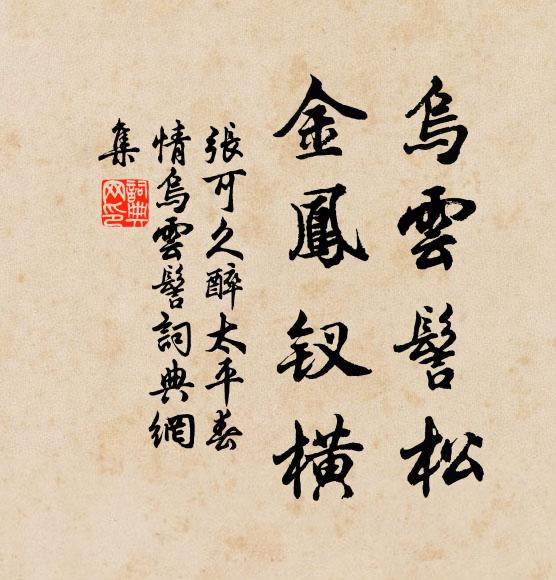 烏雲髻松
金鳳钗橫
張可久醉太平春
情烏雲髻詞典網
集
詞典
网印